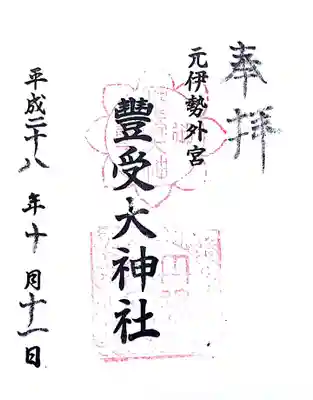 奉拝
元伊勢外宮
豐受大神社
平成二十八年十月十一日